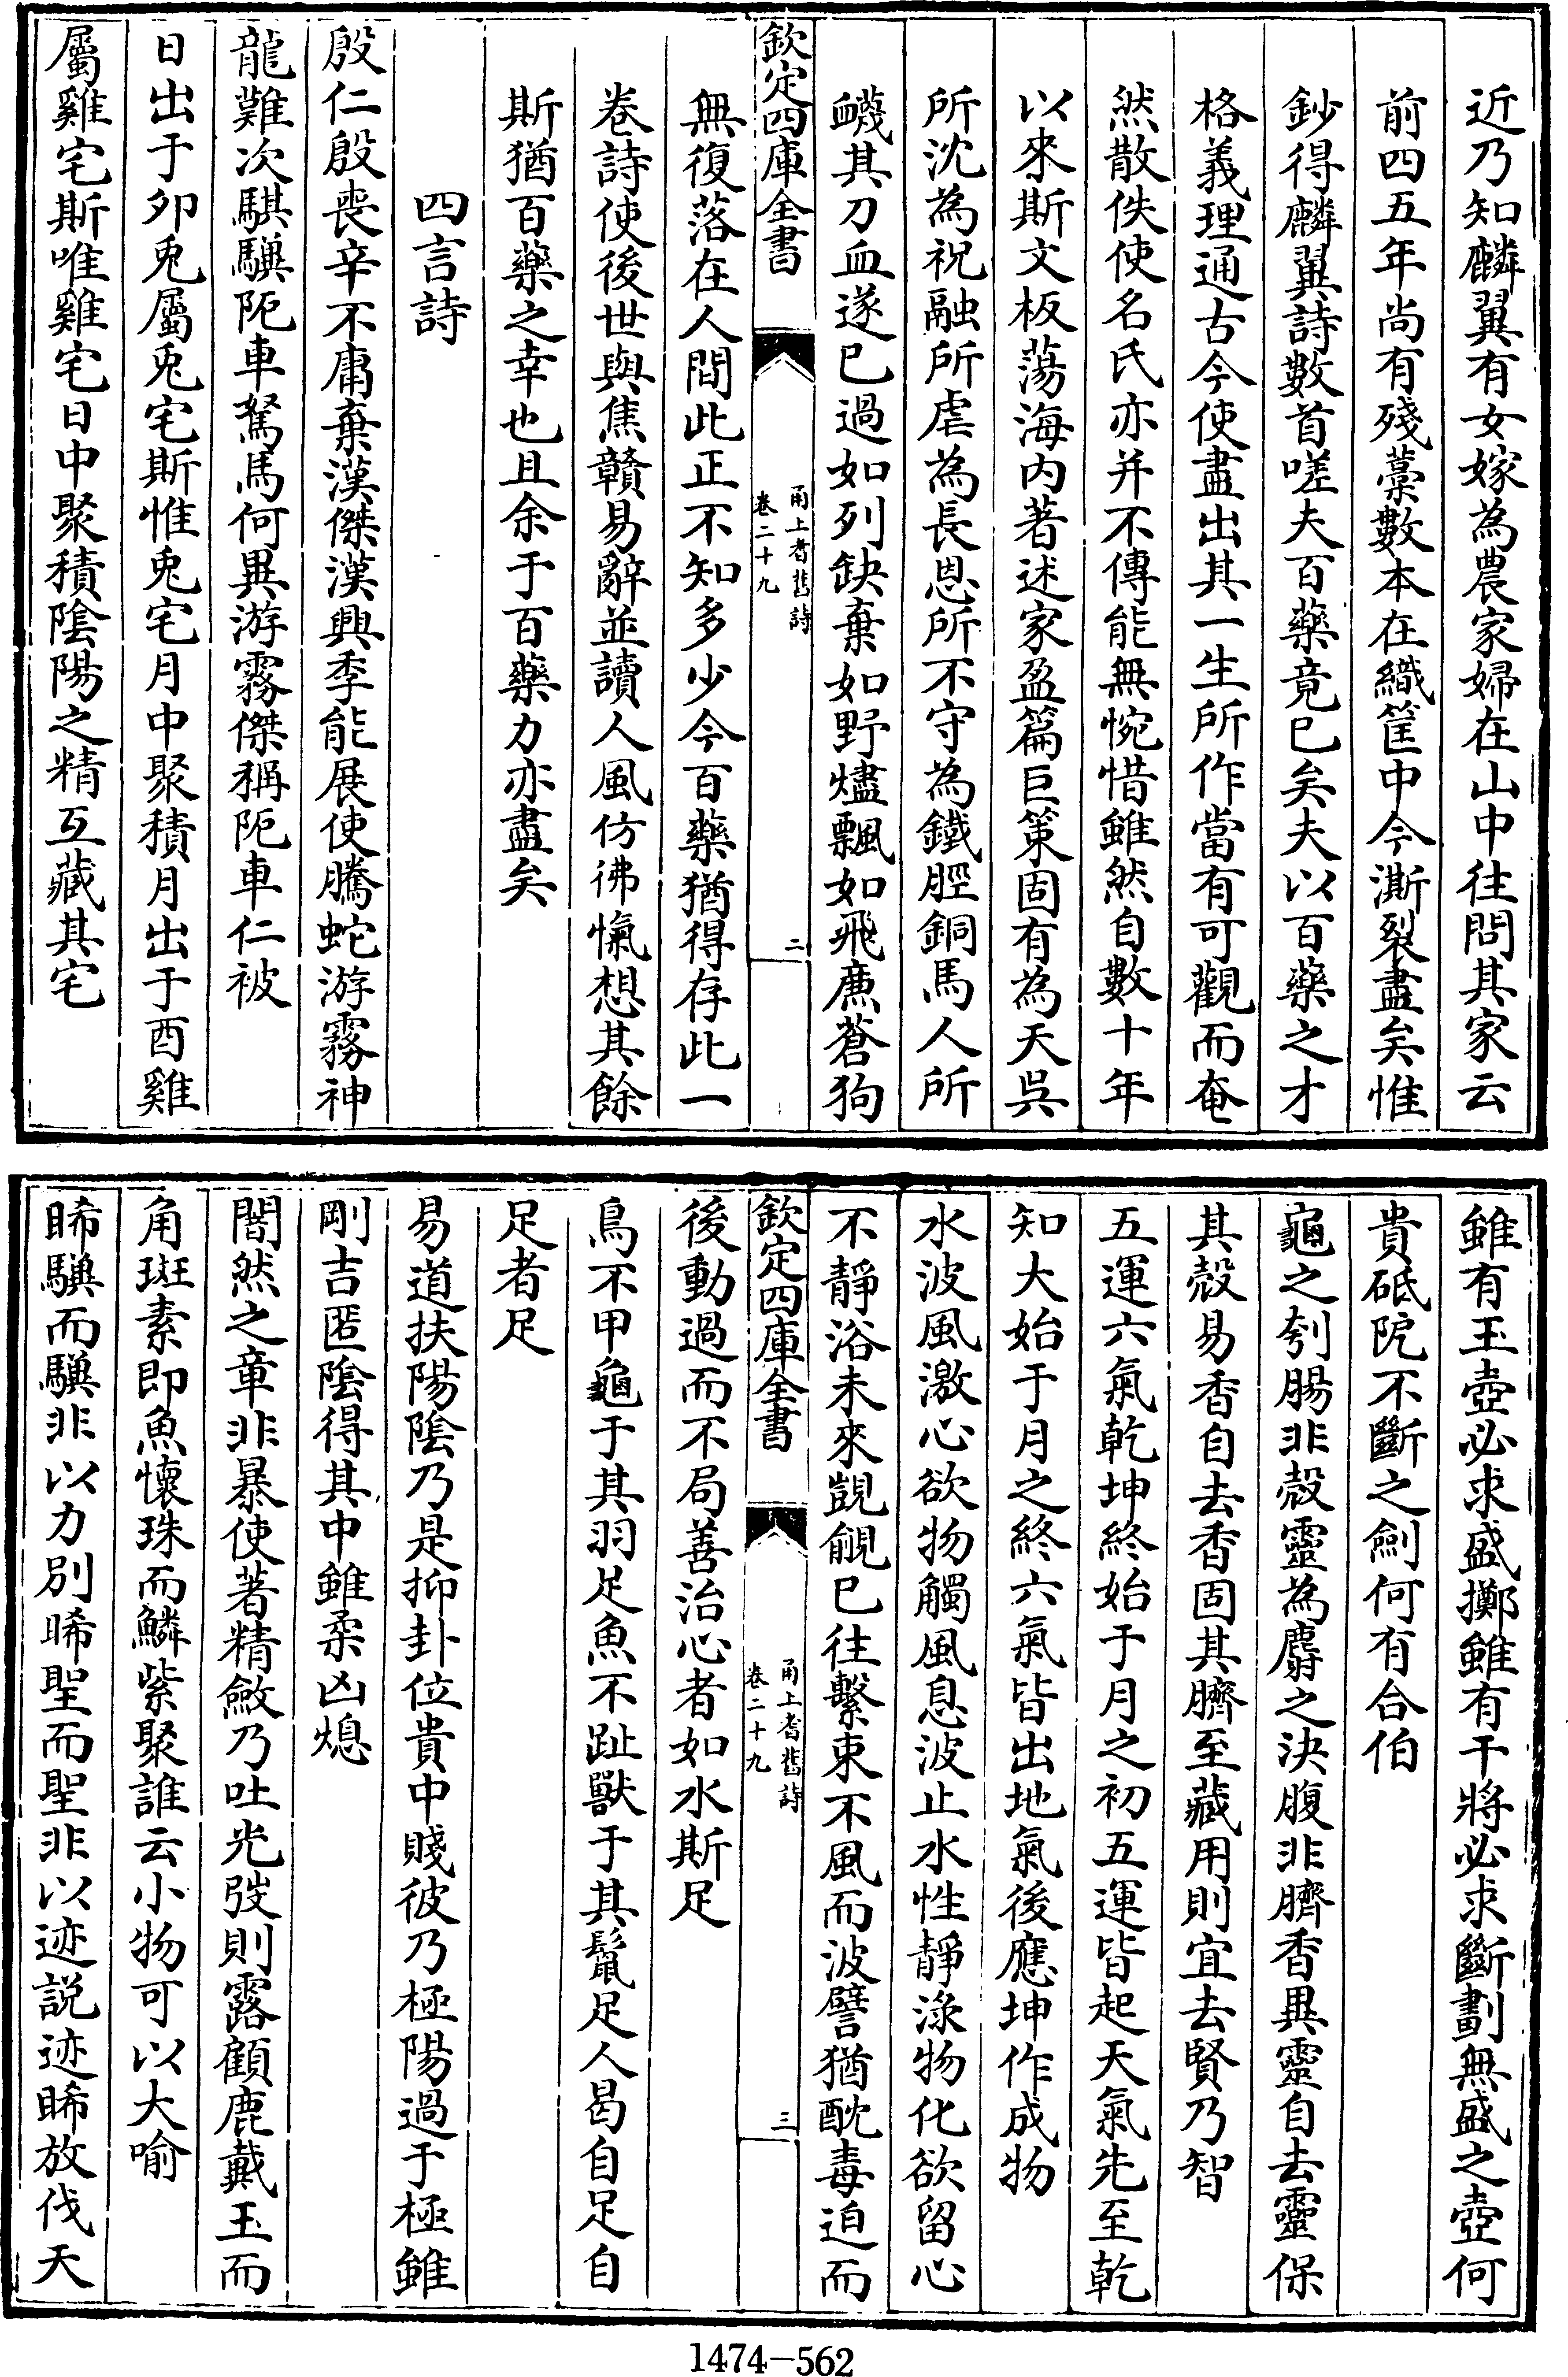 近乃知麟翼有女嫁為農家婦在山中往問其家云
前四五年尚有殘藁數本在織筐中今澌裂盡矣惟
鈔得麟翼詩數首嗟夫百藥竟已矣夫以百藥之才
格義理通古今使盡出其一生所作當有可觀而奄
然散佚使名氏亦并不傳能無惋惜雖然自數十年
以來斯文板蕩海内著述家盈篇巨策固有為天吳
所沈為祝融所虐為長恩所不守為鐵脛銅馬人所
衊其刀血遂已過如列缺棄如野燼飄如飛廉蒼狗
欽定四庫全書
甬上耆舊詩
卷二十九
二
無復落在人間此正不知多少今百藥猶得存此一
卷詩使後世與焦贛易辭並讀人風仿彿愾想其餘
斯猶百藥之幸也且余于百藥力亦盡矣
四言詩
殷仁殷喪辛不庸棄漢傑漢興季能展使騰蛇游霧神
龍難次騏驥阨車駑馬何異游霧傑稱阨車仁被
日出于卯兎屬兎宅斯惟兎宅月中聚積月出于酉雞
屬雞宅斯唯雞宅日中聚積陰陽之精互藏其宅
雖有玉壺必求盛擲雖有干將必求斷劃無盛之壺何
貴砥阸不斷之劍何有合伯
龜之刳腸非殻靈為麝之決腹非臍香異靈自去靈保
其殻易香自去香固其臍至藏用則宜去賢乃智
五運六氣乾坤終始于月之初五運皆起天氣先至乾
知大始于月之終六氣皆出地氣後應坤作成物
水波風激心欲物觸風息波止水性靜淥物化欲留心
不靜浴未來覬覦已往繫束不風而波譬猶酖毒迫而
欽定四庫全書
甬上耆舊詩
卷二十九
三
後動過而不局善治心者如水斯足
鳥不甲龜于其羽足魚不趾獸于其鬣足人曷自足自
足者足
易道扶陽陰乃是抑卦位貴中賤彼乃極陽過于極雖
剛吉匿陰得其中雖柔凶熄
闇然之章非暴使著精斂乃吐光弢則露顧鹿戴玉而
角斑素即魚懷珠而鱗紫聚誰云小物可以大喻
睎驥而驥非以力別睎聖而聖非以迹説迹睎放伐天
1474-562